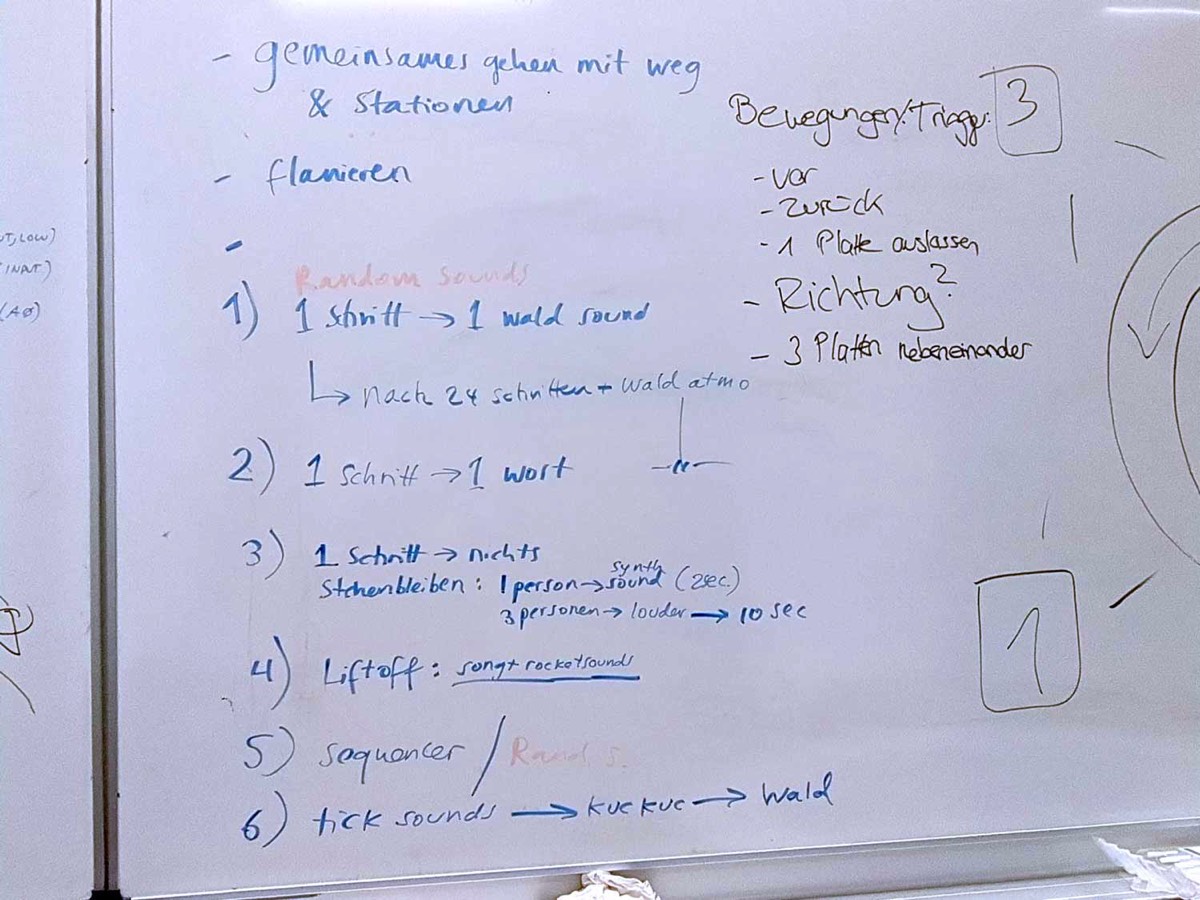 - gemeinsames gehen mit weg
& Stationen
- flanieren
-
Random Sounds
1) 1 Schritt → 1 wald sound
↳ nach 24 schritten + Wald atmo
2) 1 Schritt → 1 wort
3) 1 Schritt → nichts
Stehenbleiben : 1 person → synth sound (2sec.)
3 personen → louder → 10 sec
4) Liftoff : song + rocketsounds
5) sequencer / Rand S.
6) tick sounds → kuckuc → Wald
Bewegungen/Trigger: 3
- vor
- zurück
- 1 Platte auslassen
- Richtung?
- 3 Platten nebeneinander
1
LOW)
INPUT)
(A0)